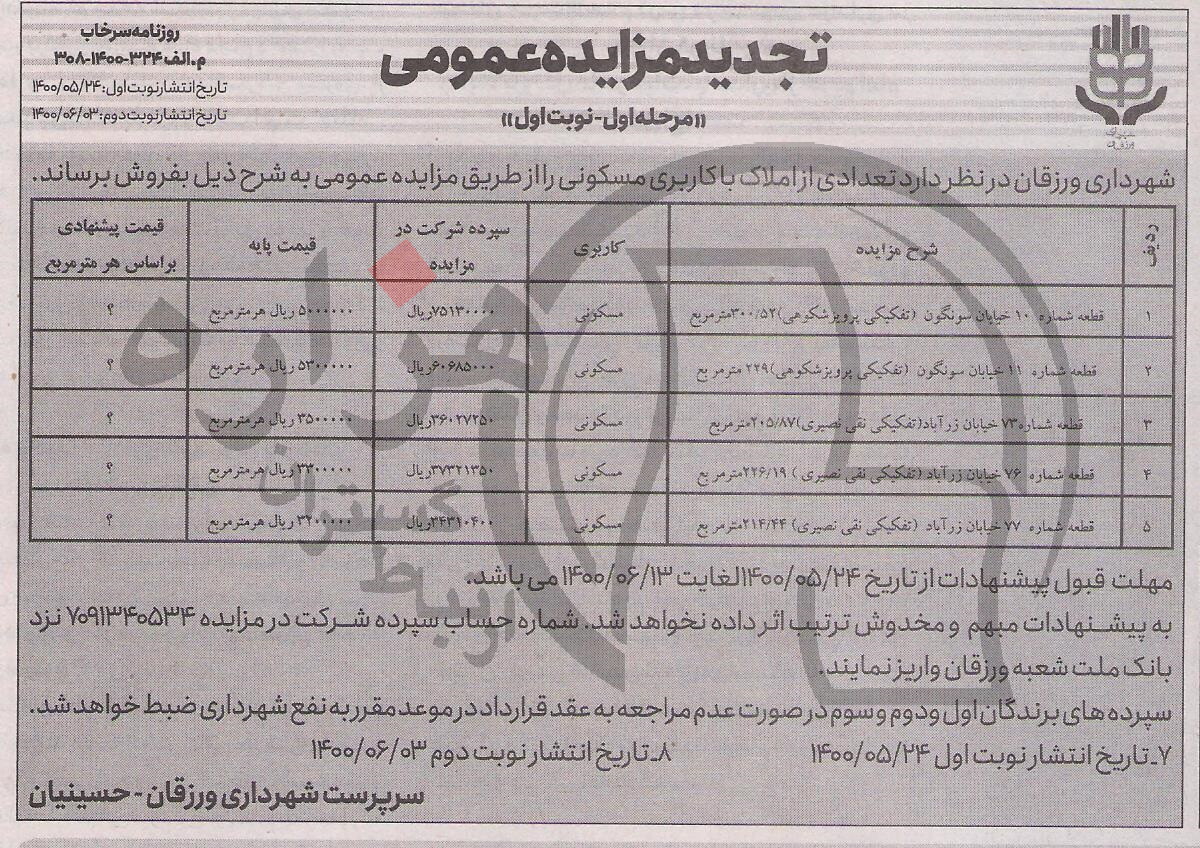 روزنامه سرخاب
م.الف ۳۲۴-۱۴۰۰-۳۰۸
تاریخ انتشار نوبت اول: ۱۴۰۰/۰۵/۲۴
تاریخ انتشار نوبت دوم: ۱۴۰۰/۰۶/۰۳
تجدید مزایده عمومی
«مرحله اول - نوبت اول»
شهرداری ورزقان
شهرداری ورزقان در نظر دارد تعدادی از املاک با کاربری مسکونی را از طریق مزایده عمومی به شرح ذیل بفروش برساند.
ردیف شرح مزایده کاربری سپرده شرکت در مزایده قیمت پایه قیمت پیشنهادی براساس هر مترمربع
۱ قطعه شماره ۱۰ خیابان سونگون (تفکیکی پرویزشکوهی)۳۰۰/۵۲مترمربع مسکونی ۷۵۱۳۰۰۰۰ریال ۵۰۰۰۰۰۰ ریال هرمترمربع ؟
۲ قطعه شماره ۱۱ خیابان سونگون (تفکیکی پرویزشکوهی)۲۲۹ مترمربع مسکونی ۶۰۶۸۵۰۰۰ریال ۵۳۰۰۰۰۰ ریال هرمترمربع ؟
۳ قطعه شماره۷۳ خیابان زرآباد(تفکیکی نقی نصیری)۲۰۵/۸۷مترمربع مسکونی ۳۶۰۲۷۲۵۰ریال ۳۵۰۰۰۰۰ ریال هرمترمربع ؟
۴ قطعه شماره ۷۶ خیابان زرآباد (تفکیکی نقی نصیری ) ۲۲۶/۱۹مترمربع مسکونی ۳۷۳۲۱۳۵۰ریال ۳۳۰۰۰۰۰ ریال هرمترمربع ؟
۵ قطعه شماره ۷۷ خیابان زرآباد (تفکیکی نقی نصیری) ۲۱۴/۴۴مترمربع مسکونی ۳۴۳۱۰۴۰۰ریال ۳۲۰۰۰۰۰ ریال هرمترمربع ؟
مهلت قبول پیشنهادات از تاریخ ۱۴۰۰/۰۵/۲۴ لغایت ۱۴۰۰/۰۶/۱۳ می باشد.
به پیشنهادات مبهم و مخدوش ترتیب اثر داده نخواهد شد. شماره حساب سپرده شرکت در مزایده ۷۰۹۱۳۴۰۵۳۴ نزد
بانک ملت شعبه ورزقان واریز نمایند.
سپرده های برندگان اول و دوم و سوم در صورت عدم مراجعه به عقد قرارداد در موعد مقرر به نفع شهرداری ضبط خواهد شد.
۷ـ تاریخ انتشار نوبت اول ۱۴۰۰/۰۵/۲۴ ۸ـ تاریخ انتشار نوبت دوم ۱۴۰۰/۰۶/۰۳
سرپرست شهرداری ورزقان - حسینیان
هزاره
گسترش
ارتباط